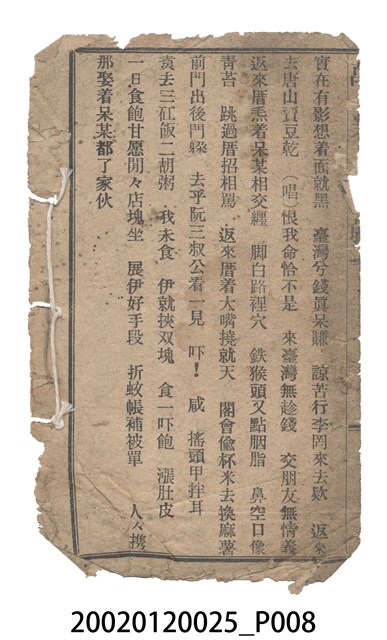 實在有影想着面就黑　臺灣兮錢眞呆賺　諒苦行李罔來去欵　返來
去唐山賣豆乾　（唱）恨我命恰不是　來臺灣無趁錢　交朋友無情義
返來厝焄着呆某相交纏　脚白路裡穴　鉄猴頭又點胭脂　鼻空口像
靑苔　跳過厝招相罵　返來厝着大嘴撓就天　閣會偸杯米去換麻薯
前門出後門躱　去乎阮三叔公看一見　吓！　咸　搖頭甲拌耳
袞去三缸飯二胡粥　我未食　伊就挾双塊　食一吓飽　漲肚皮
一日食飽甘愿閒々店塊坐　展伊好手段　折蚊帳補被單　人々携
那娶着呆某都了家伙
20020120025_P008